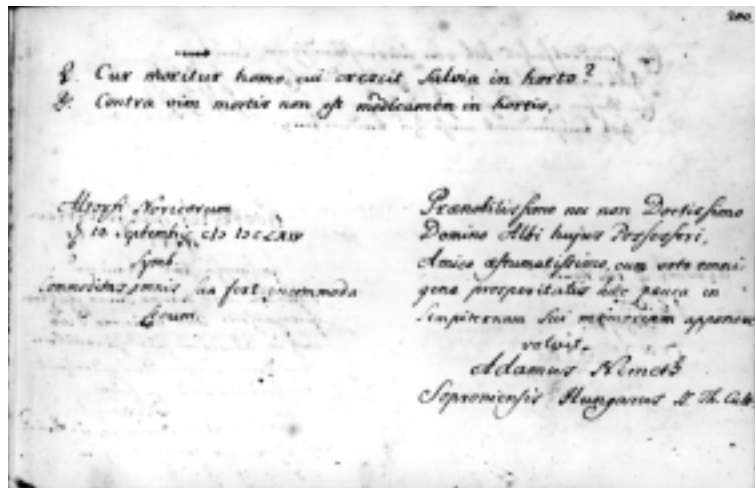 200.
Q. Cur moritur homo, cui crescit Salvia in horto?
R. Contra vim mortis non est medicamen in hortis.
Altorfi Noricorum
12 Septembris
Symb.
Commoditas omnis sua fert incommoda
secum.
Prænobilissimo nec non Doctissimo
Domino Albi hujus Possessori,
Amico æstumatissimo, cum voto omni-
genæ prosperitatis hæc pauca in
sempiternam sui memoriam apponere
voluit.
Adamus Nemeth
Soproniensis Hungarus Th. Cult.